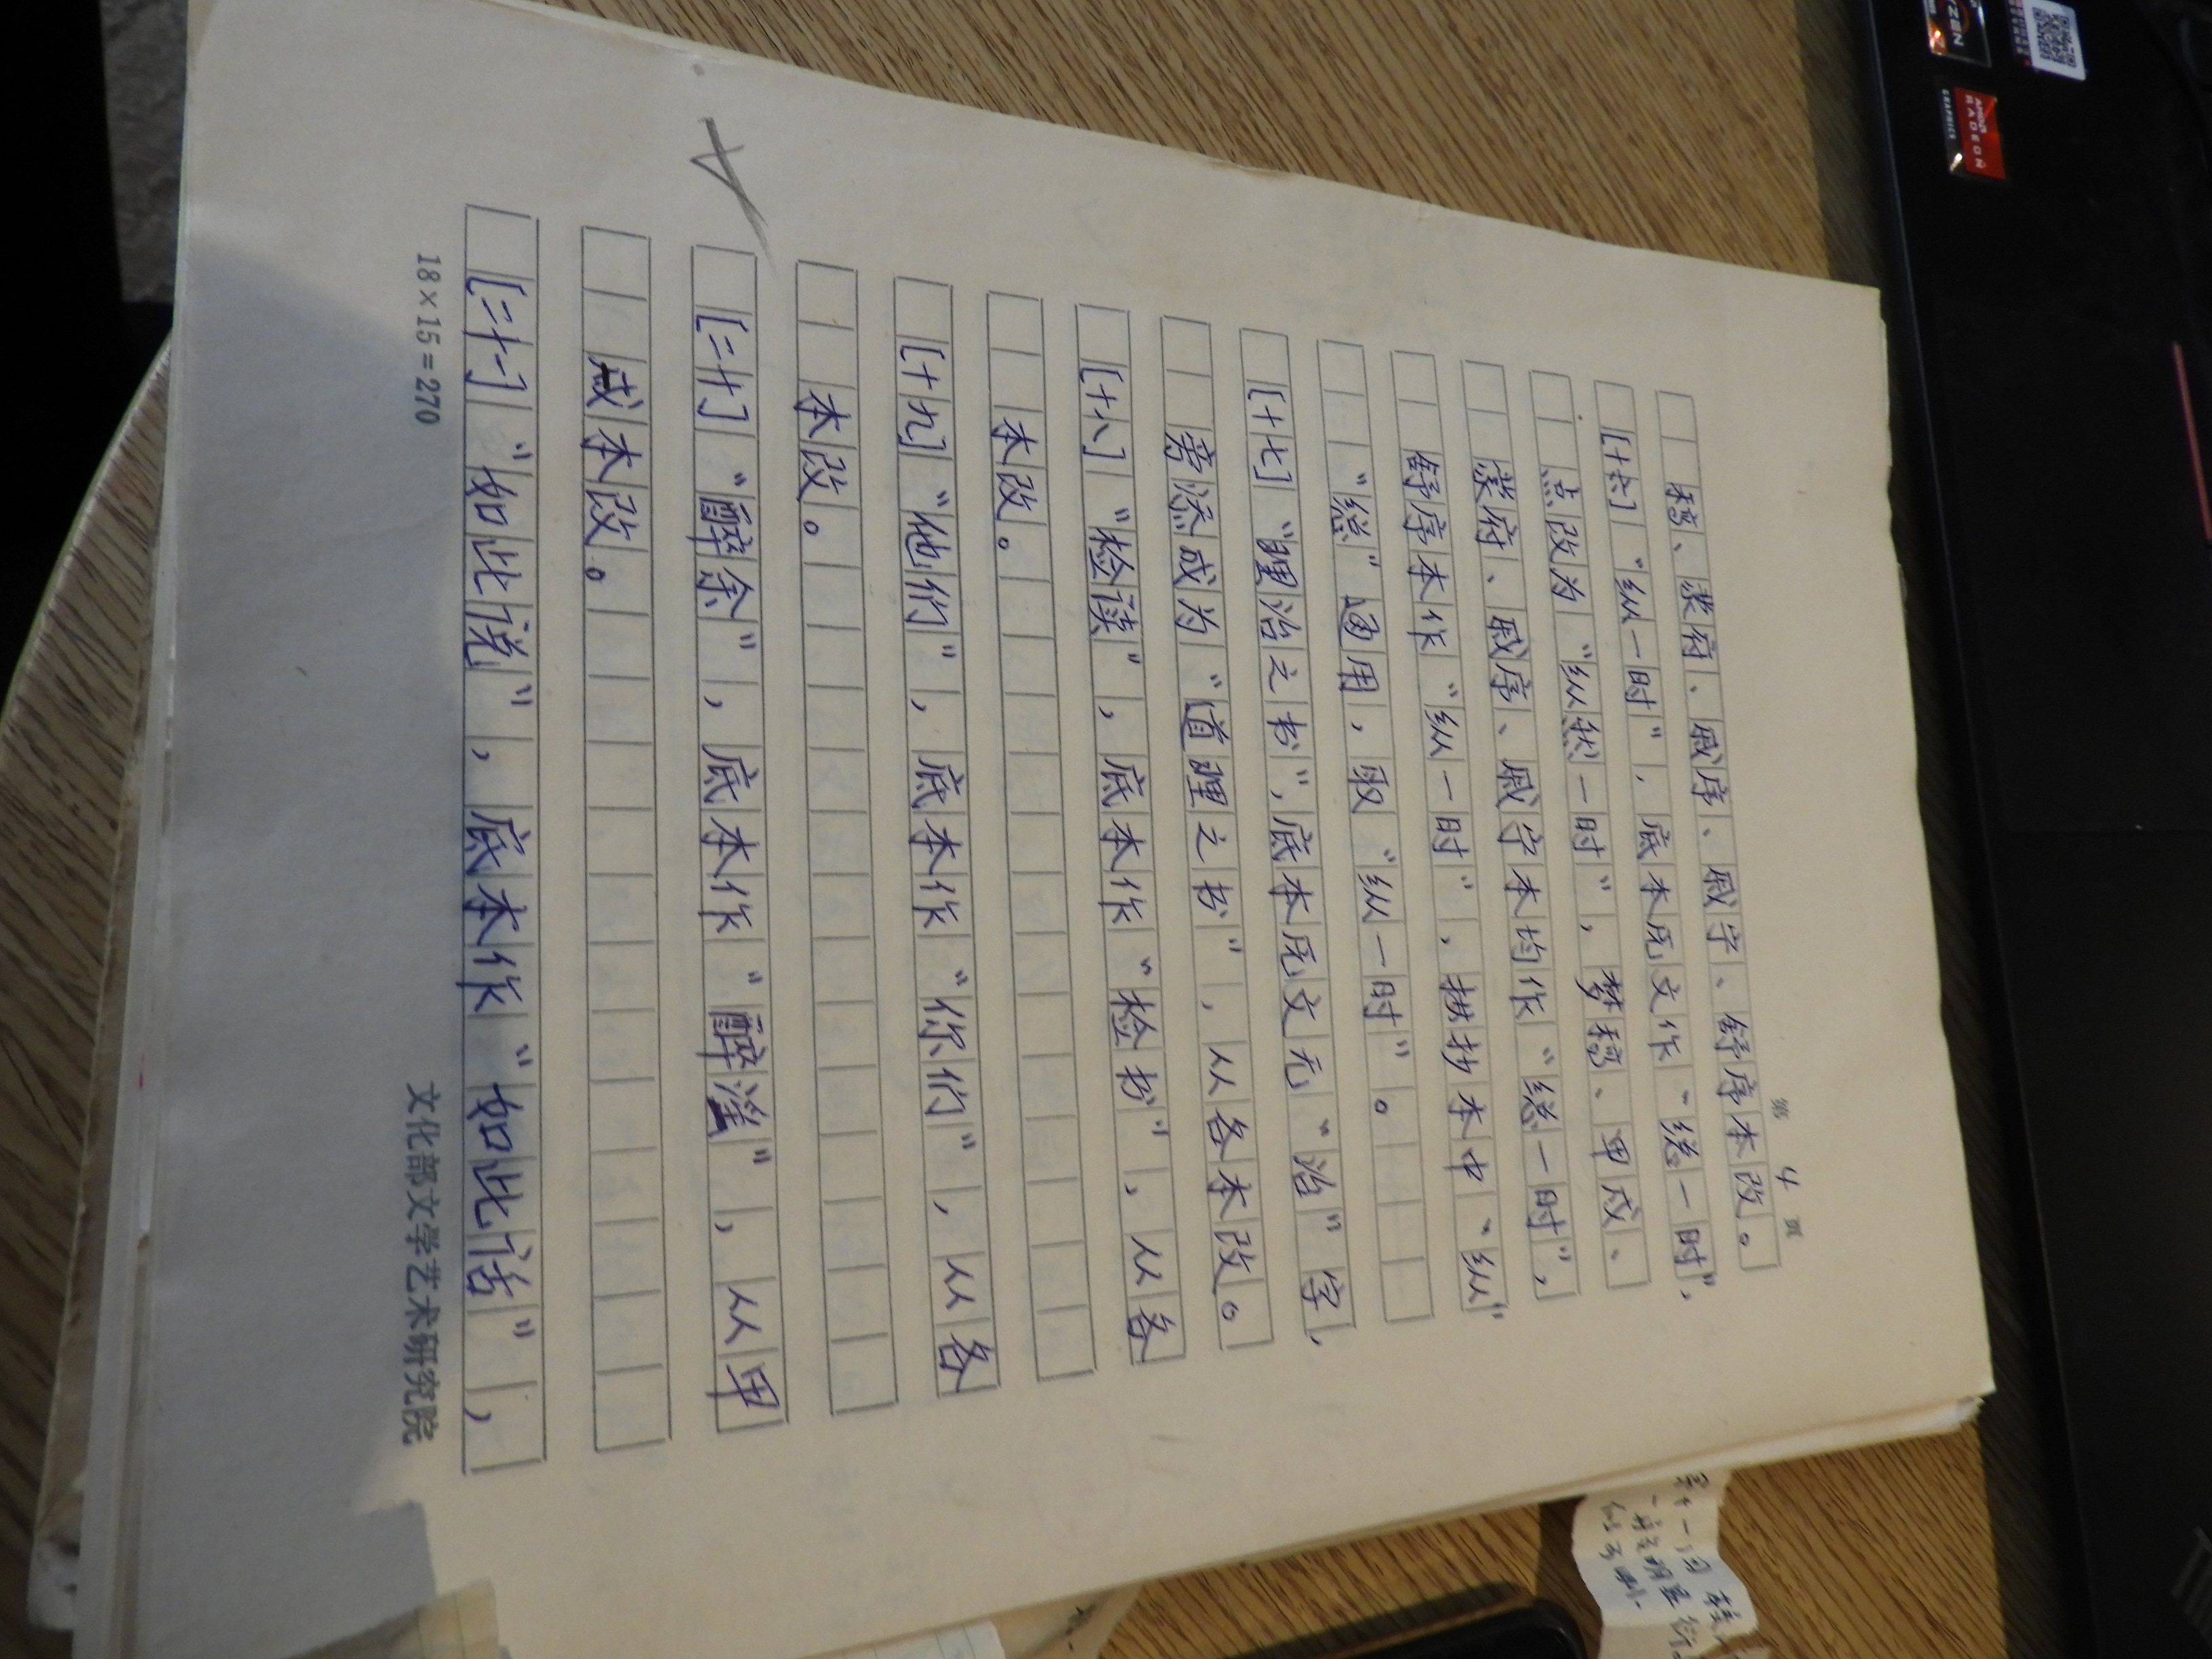 第 4 页
稿、蒙府、戚序、戚宁、舒序本改。
[十六]“纵一时”，底本原文作“緃一时”，
点改为“纵然一时”，梦稿、甲戌、
蒙府、戚序、戚宁本均作“緃一时”，
舒序本作“纵一时”，按抄本中“纵”
“緃”通用，取“纵一时”。
[十七]“理治之书”，底本原文无“治”字，
旁添成为“道理之书”，从各本改。
[十八]“检读”，底本作“检书”，从各
本改。
[十九]“他们”，底本作“你们”，从各
本改。
[二十]“醉余”，底本作“醉淫”，从甲
戌本改。
[二十一]“如此说”，底本作“如此话”，
18×15=270
文化部文学艺术研究院
RYZEN
AMD
RADEON
GRAPHICS